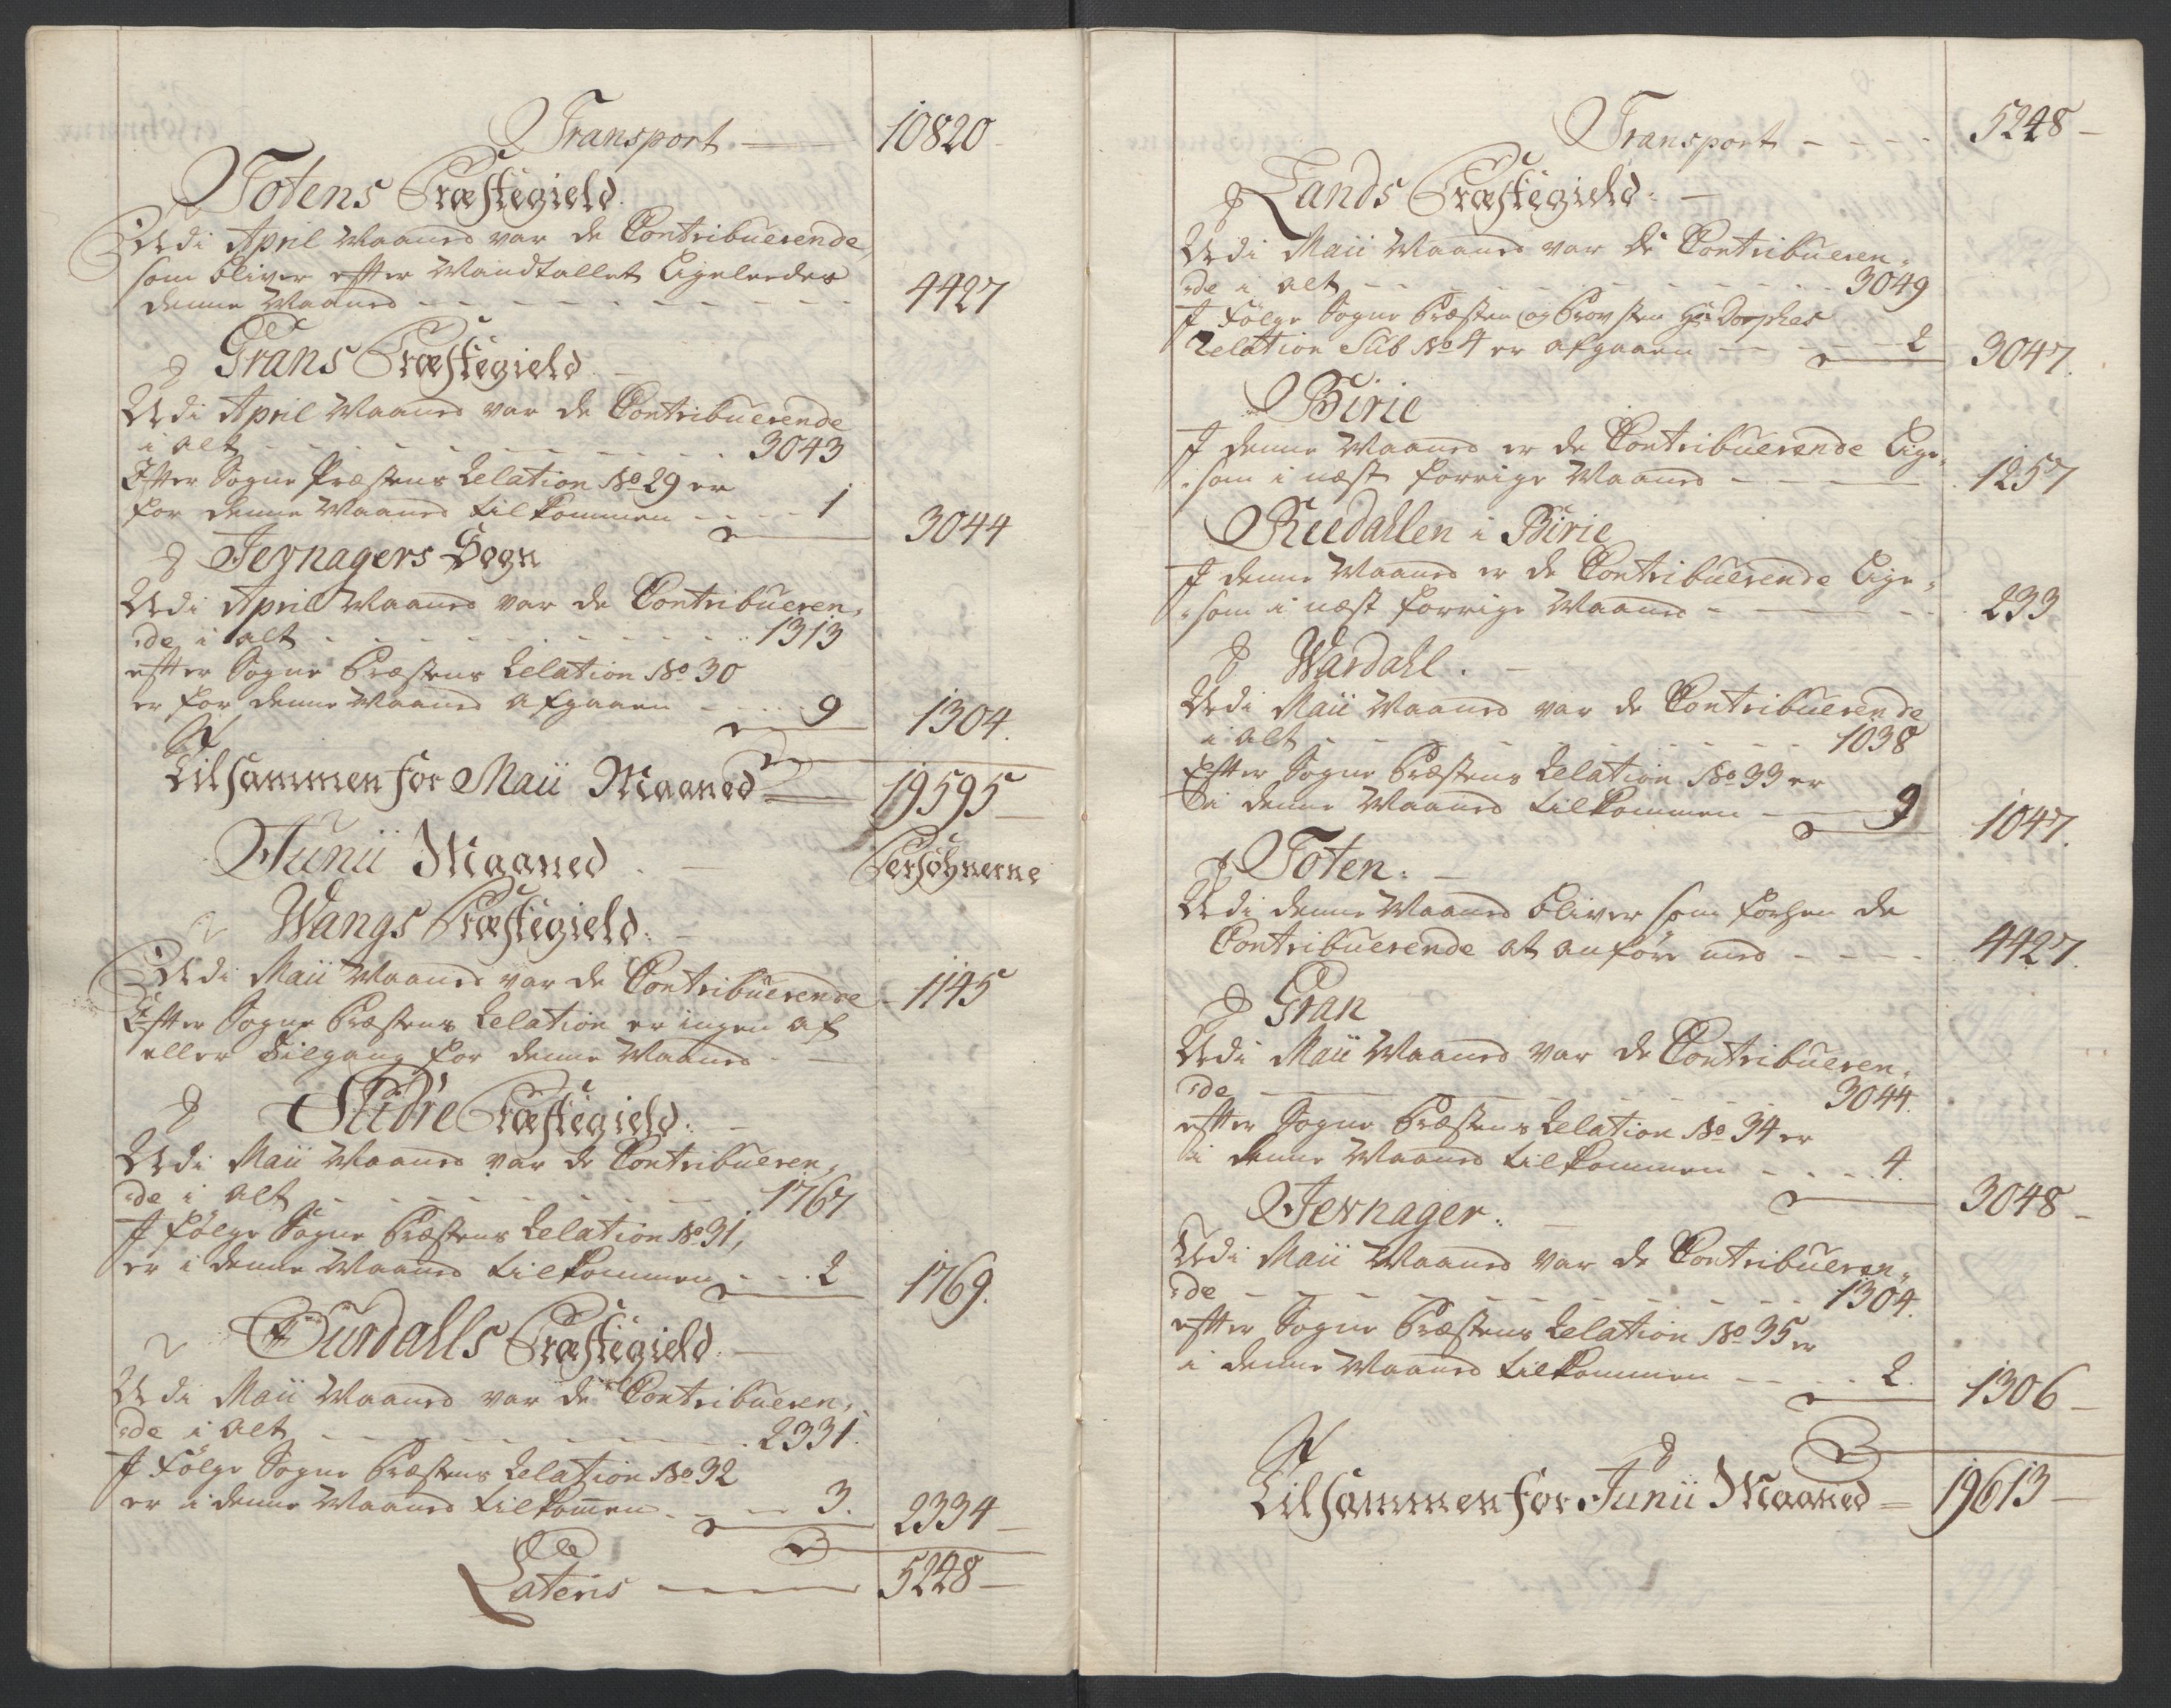 Transport — 10820
Totens Præstegield.
Udi April Maaned var de Contribuerende,
som bliver efter Mandtallet Ligeleedes
denne Maaned - - - 4427
J Grans Præstegield. —
Udi April Maaned var de Contribuerende
i alt - - - 3043
Efter Sogne Præstens Relation No 29 er
for denne Maaned tilkommen - - - 1
3044
J Jevnagers Sogn
Udi April Maaned var de Contribueren,
:de i alt - - - 1313
efter Sogne Præstens Relation No 30
er for denne Maaned afgaaen - - - 9
1304.
Tilsammen for Maii Maaned 19595 —
Junii Maaned. — Persohnerne
Wangs Præstegield. —
Udi Maii Maaned var de Contribuerende - 1145
Efter Sogne Præstens Relation er ingen af
eller Tilgang for denne Maaned - —
J Slidre Præstegield. —
Udi Maii Maaned var de Contribueren,
:de i alt - - - 1767
J følge Sogne Præstens Relation No 31,
er i denne Maaned tilkommen - - - 2
1769.
Ourdahls Præstegield. —
Udi Maii Maaned var de Contribueren,
:de i alt - - - 2331.
J Følge Sogne Præstens Relation No 32
er i denne Maaned tilkommen - - - 3.
2334 —
Lateris — 5248 —
Transport - - - 5248 —
J Lands Præstegield. —
Udi Maii Maaned var de Contribueren,
:de i alt - - - 3049
J Følge Sogne Præsten og Provsten Hr Dorphes
Relation Sub No 4 er afgaaen - - - 2
3047.
Birie
J denne Maaned er de Contribuerende Lige,
:som i næst forrige Maaned - - - 1257
Reedahlen i Birie
J denne Maaned er de Contribuerende Lige,
:som i næst forrige Maaned - - - 233
J Wardahl. —
Udi Maii Maaned var de Contribuerende
i alt - - - 1038
Efter Sogne Præstens Relation No 33 er
i denne Maaned tilkommen - 9
1047.
J Toten. —
Udi denne Maaned bliver som forhen de
Contribuerende at anføre med - - - 4427.
J Gran
Udi Maii Maaned var de Contribueren,
:de - - - 3044.
efter Sogne Præstens Relation No 34 er
i denne Maaned tilkommen - - - 4.
3048 —
Jevnager. —
Udi Maii Maaned var de Contribueren,
:de - - - 1304.
efter Sogne Præstens Relation No 35 er
i denne Maaned tilkommen - - - 2.
1306 —
Tilsammen for Junii Maaned = 19613 —